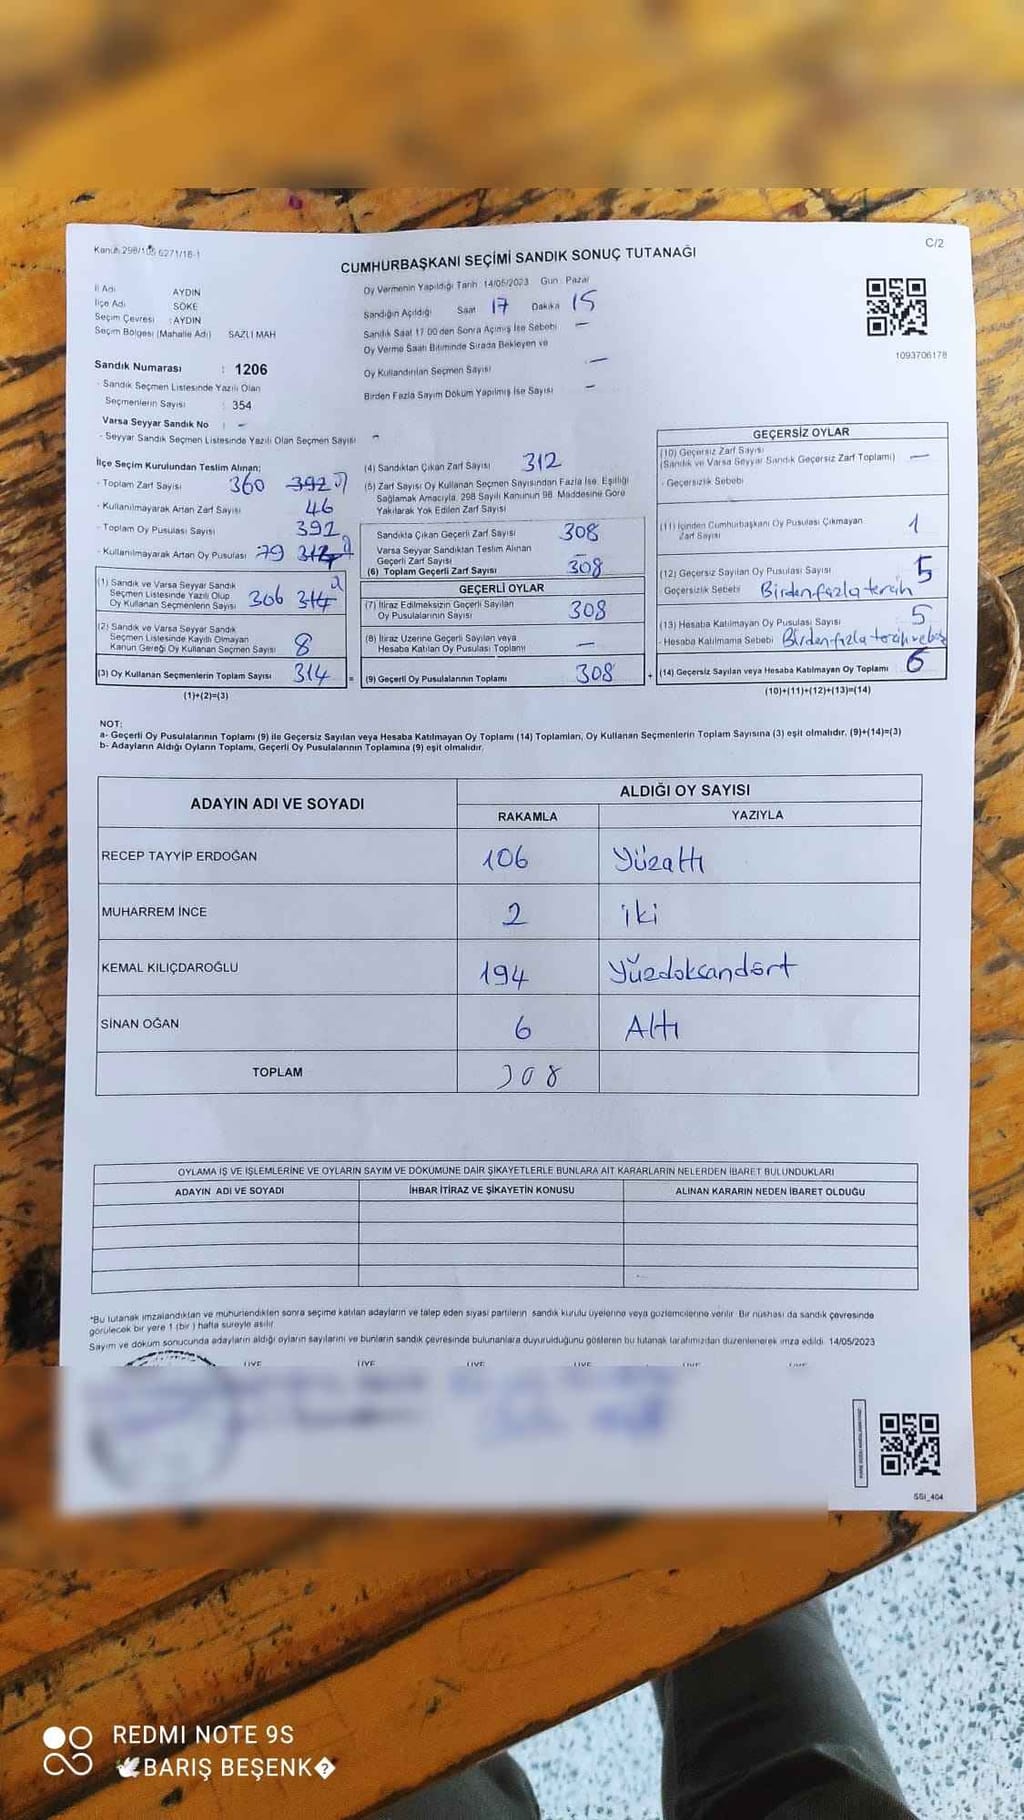 Kanun 298/105 6271/18-1
C/2
CUMHURBAŞKANI SEÇİMİ SANDIK SONUÇ TUTANAĞI
İl Adı AYDIN
İlçe Adı SÖKE
Seçim Çevresi : AYDIN
Seçim Bölgesi (Mahalle Adı) SAZLI MAH
Oy Vermenin Yapıldığı Tarih 14/05/2023 Gün : Pazar
Sandığın Açıldığı Saat 17 Dakika 15
Sandık Saat 17 00 den Sonra Açılmış İse Sebebi —
Oy Verme Saati Bitiminde Sırada Bekleyen ve
Oy Kullandırılan Seçmen Sayısı —
Birden Fazla Sayım Döküm Yapılmış İse Sayısı —
1093706178
Sandık Numarası : 1206
- Sandık Seçmen Listesinde Yazılı Olan
Seçmenlerin Sayısı : 354
Varsa Seyyar Sandık No : -
- Seyyar Sandık Seçmen Listesinde Yazılı Olan Seçmen Sayısı -
İlçe Seçim Kurulundan Teslim Alınan;
- Toplam Zarf Sayısı 360 392
- Kullanılmayarak Artan Zarf Sayısı 46
- Toplam Oy Pusulası Sayısı 392
- Kullanılmayarak Artan Oy Pusulası 79
(1) Sandık ve Varsa Seyyar Sandık
Seçmen Listesinde Yazılı Olup
Oy Kullanan Seçmenlerin Sayısı 306 314
(2) Sandık ve Varsa Seyyar Sandık
Seçmen Listesinde Kayıtlı Olmayan
Kanun Gereği Oy Kullanan Seçmen Sayısı 8
(3) Oy Kullanan Seçmenlerin Toplam Sayısı 314 =
(1)+(2)=(3)
(4) Sandıktan Çıkan Zarf Sayısı 312
(5) Zarf Sayısı Oy Kullanan Seçmen Sayısından Fazla İse, Eşitliği
Sağlamak Amacıyla, 298 Sayılı Kanunun 98. Maddesine Göre
Yakılarak Yok Edilen Zarf Sayısı
Sandıkta Çıkan Geçerli Zarf Sayısı 308
Varsa Seyyar Sandıktan Teslim Alınan
Geçerli Zarf Sayısı —
(6) Toplam Geçerli Zarf Sayısı 308
GEÇERLİ OYLAR
(7) İtiraz Edilmeksizin Geçerli Sayılan
Oy Pusulalarının Sayısı 308
(8) İtiraz Üzerine Geçerli Sayılan veya
Hesaba Katılan Oy Pusulası Toplamı —
(9) Geçerli Oy Pusulalarının Toplamı 308 +
GEÇERSİZ OYLAR
(10) Geçersiz Zarf Sayısı
(Sandık ve Varsa Seyyar Sandık Geçersiz Zarf Toplamı) —
- Geçersizlik Sebebi
(11) İçinden Cumhurbaşkanı Oy Pusulası Çıkmayan
Zarf Sayısı 1
(12) Geçersiz Sayılan Oy Pusulası Sayısı 5
Geçersizlik Sebebi Birden fazla tercih
(13) Hesaba Katılmayan Oy Pusulası Sayısı 5
- Hesaba Katılmama Sebebi Birden fazla tercih ve boş
(14) Geçersiz Sayılan veya Hesaba Katılmayan Oy Toplamı 6
(10)+(11)+(12)+(13)=(14)
NOT:
a- Geçerli Oy Pusulalarının Toplamı (9) ile Geçersiz Sayılan veya Hesaba Katılmayan Oy Toplamı (14) Toplamları, Oy Kullanan Seçmenlerin Toplam Sayısına (3) eşit olmalıdır. (9)+(14)=(3)
b- Adayların Aldığı Oyların Toplamı, Geçerli Oy Pusulalarının Toplamına (9) eşit olmalıdır.
ADAYIN ADI VE SOYADI
ALDIĞI OY SAYISI
RAKAMLA YAZIYLA
RECEP TAYYİP ERDOĞAN 106 Yüzaltı
MUHARREM İNCE 2 iki
KEMAL KILIÇDAROĞLU 194 Yüzdoksandört
SİNAN OĞAN 6 Altı
TOPLAM 308
OYLAMA İŞ VE İŞLEMLERİNE VE OYLARIN SAYIM VE DÖKÜMÜNE DAİR ŞİKAYETLERLE BUNLARA AİT KARARLARIN NELERDEN İBARET BULUNDUKLARI
ADAYIN ADI VE SOYADI İHBAR İTİRAZ VE ŞİKAYETİN KONUSU ALINAN KARARIN NEDEN İBARET OLDUĞU
*Bu tutanak imzalandıktan ve mühürlendikten sonra seçime katılan adayların ve talep eden siyasi partilerin sandık kurulu üyelerine veya gözlemcilerine verilir. Bir nüshası da sandık çevresinde
görülecek bir yere 1 (bir ) hafta süreyle asılır.
Sayım ve döküm sonucunda adayların aldığı oyların sayılarını ve bunların sandık çevresinde bulunanlara duyurulduğunu gösteren bu tutanak tarafımızdan düzenlenerek imza edildi. 14/05/2023
SSI_404
REDMI NOTE 9S
BARIŞ BEŞENK